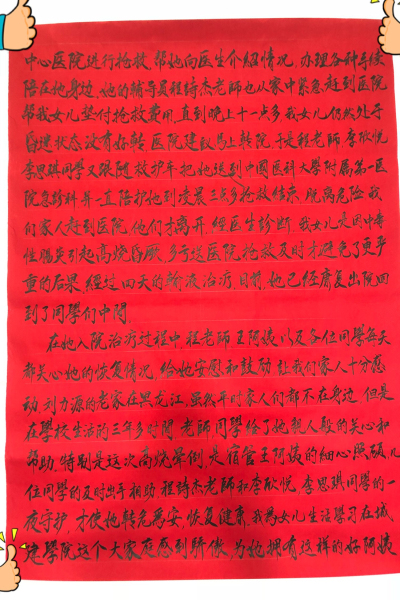 中心医院进行抢救,帮她向医生介紹情况,办理各种手续
陪在她身边,她的辅导員程琦杰老師也从家中紧急赶到医院
帮我女儿垫付抢救費用,直到晚上十一点多我女儿仍然处于
昏迷状态没有好转医院建议馬上转院,于是程老師,李欣悦
李思琪同學又张随救护车把她送到中國医科大學附属第一医
院急診科并一直陪护她到凌晨三点多抢救结束,脱离危险,我
们家人赶到医院,他们才离开,經医生診断,我女儿是因中毒
性腸炎引起高燒昏厥,多亏送医院抢救及时才避免了更严
重的后果,經过四天的输液治疗,目前她已經康复出院回
到了同學们中間.
在她入院治疗过程中程老師王阿姨以及各位同學每天
都关心她的恢复情况,给她安慰和鼓励,让我们家人十分感
动,刘力源的老家在黑龙江,虽然平时家人们都不在身边,但是
在學校生活的三年多时間,老師同學给了她親人般的关心和
幫助,特别是这次高燒晕倒,是宿管王阿姨的细心照顾,几
位同學的及时出手相助,程琦杰老師和李欣悦,李思琪同學的一
夜守护,才使她转危為安,恢复健康,我為女儿生活學习在城
建學院这个大家庭感到骄傲,为她拥有这样的好阿姨